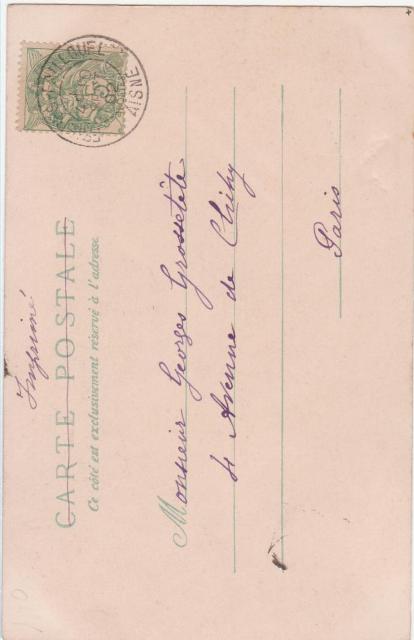 Imprimé
CARTE POSTALE
Ce côté est exclusivement réservé à l'adresse.
Monsieur Georges Grossetête
4 Avenue de Clichy
Paris
AISNE